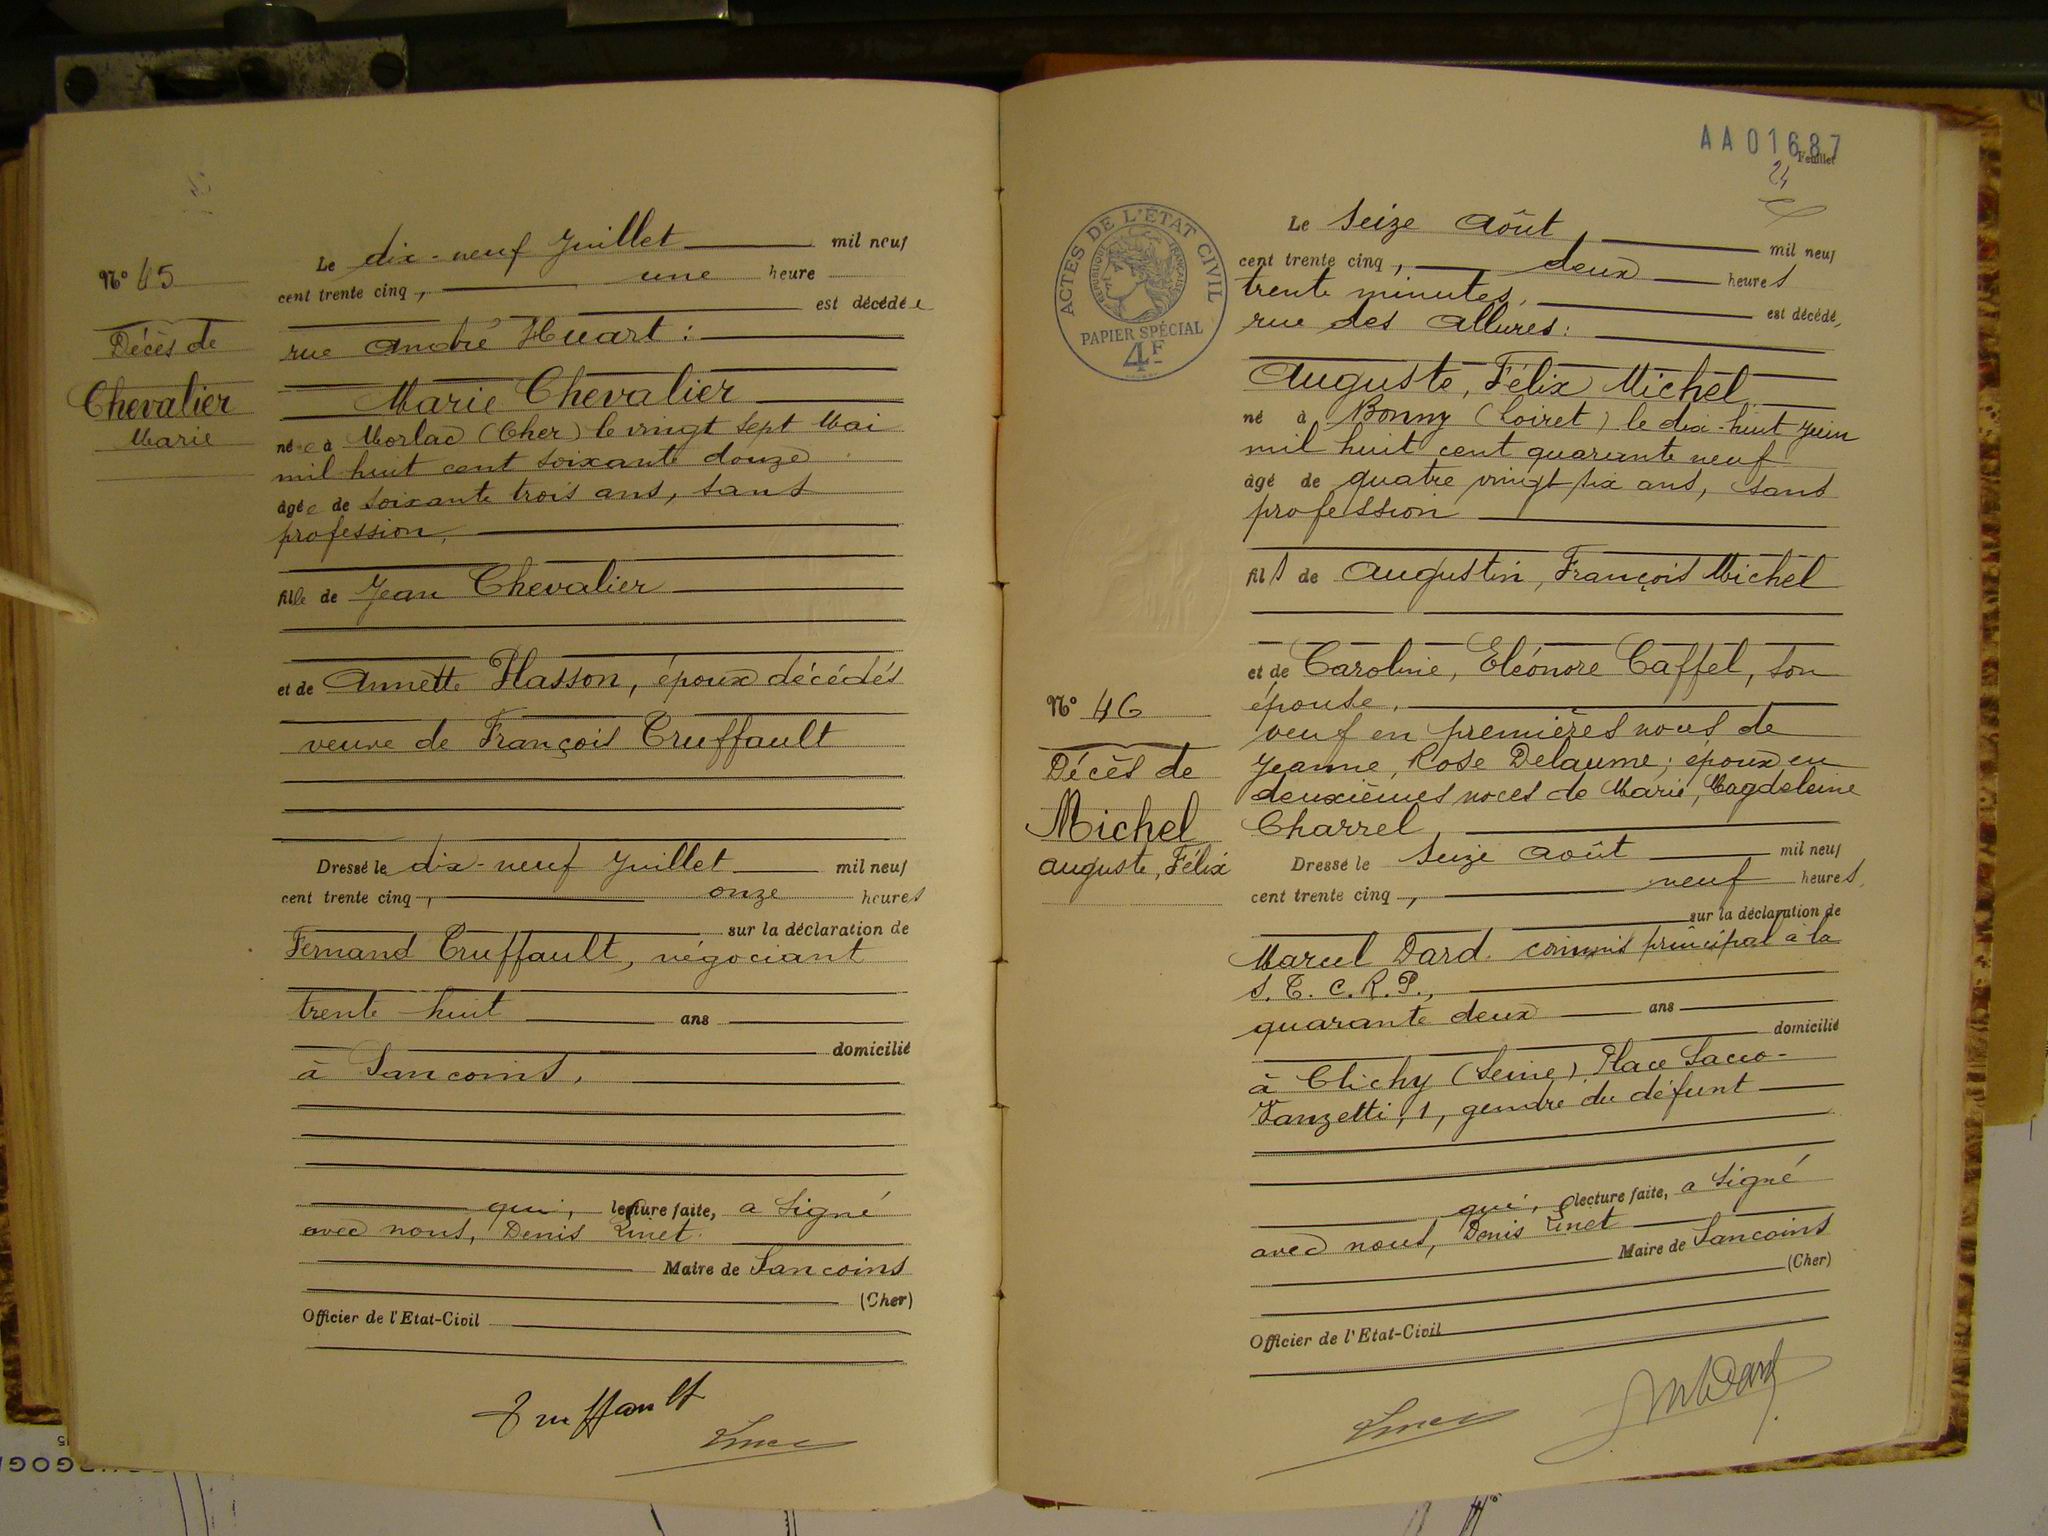 N° 45
Décès de
Chevalier
Marie
Le dix-neuf Juillet mil neuf
cent trente cinq, une heure
est décédée
rue André Huart :
Marie Chevalier
née à Morlac (Cher) le vingt sept Mai
mil huit cent soixante douze
âgée de soixante trois ans, sans
profession,
fille de Jean Chevalier
et de Annette Plasson, époux décédés
veuve de François Truffault
Dressé le dix-neuf Juillet mil neuf
cent trente cinq, onze heures
sur la déclaration de
Fernand Truffault, négociant
trente huit ans
domicilié
à Sancoins,
qui, lecture faite, a signé
avec nous, Denis Linet.
Maire de Sancoins
(Cher)
Officier de l'Etat-Civil
Truffault
Linet
AA01687
Feuillet
24
ACTES DE L'ÉTAT CIVIL
RÉPUBLIQUE FRANÇAISE
PAPIER SPÉCIAL
4F
N° 46
Décès de
Michel
Auguste, Félix
Le Seize Août, mil neuf
cent trente cinq, deux heures
trente minutes, est décédé,
rue des Allures:
Auguste, Félix Michel
né à Bonny (Loiret) le dix-huit Juin
mil huit cent quarante neuf
âgé de quatre vingt six ans, sans
profession
fils de Augustin, François Michel
et de Caroline, Eléonore Caffel, son
épouse,
veuf en premières noces de
Jeanne, Rose Delaume; époux en
deuxièmes noces de Marie, Magdeleine
Charrel,
Dressé le Seize Août mil neuf
cent trente cinq, neuf heures,
sur la déclaration de
Marcel Dard. commis principal à la
S. T. C. R. P.,
quarante deux ans
domicilié
à Clichy (Seine) Place Sacco-
Vanzetti, 1, gendre du défunt
qui, lecture faite, a signé
avec nous, Denis Linet
Maire de Sancoins
(Cher)
Officier de l'Etat-Civil
Linet
MDard